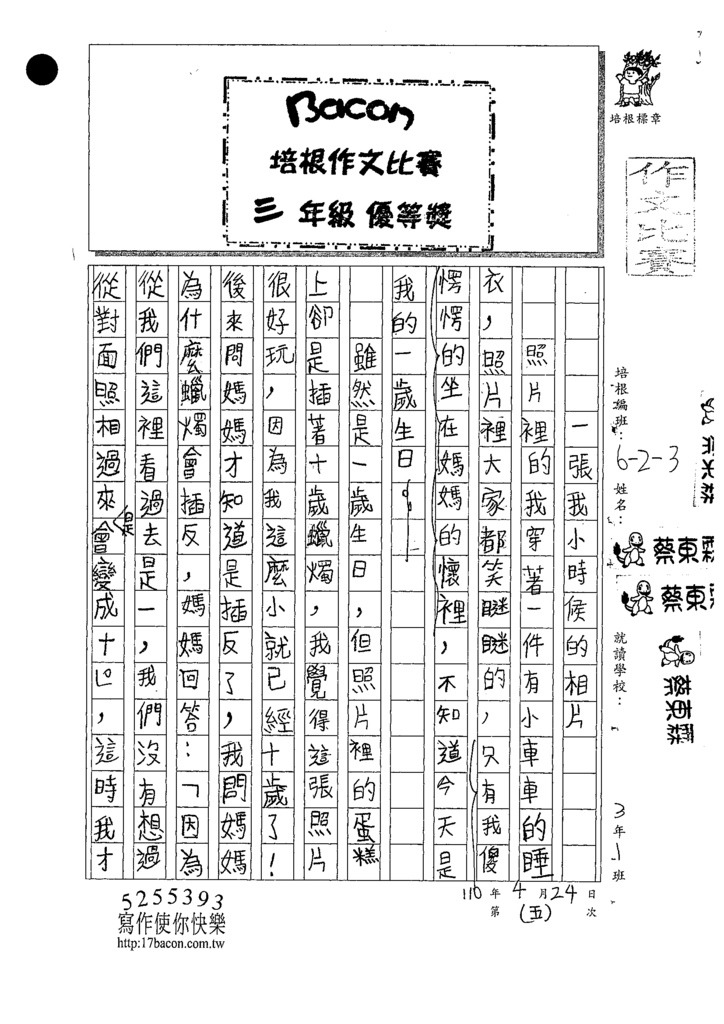 Bacon
培根作文比賽
三 年級 優等獎
培根標章
作文比賽
培根編班：6-2-3
姓名：
蔡東霖
蔡東霖
就讀學校：
蔡東霖
3年1班
一張我小時候的相片
照片裡的我穿著一件有小車車的睡
衣，照片裡大家都笑瞇瞇的，只有我傻
愣愣的坐在媽媽的懷裡，不知道今天是
我的一歲生日。
雖然是一歲生日，但照片裡的蛋糕
上卻是插著十歲蠟燭，我覺得這張照片
很好玩，因為我這麼小就已經十歲了！
後來問媽媽才知道是插反了，我問媽媽
為什麼蠟燭會插反，媽媽回答：「因為
從我們這裡看過去是一，我們沒有想過
從對面照相過來會是變成十」，這時我才
110年4月24日
第(五)次
5255393
寫作使你快樂
http:17bacon.com.tw